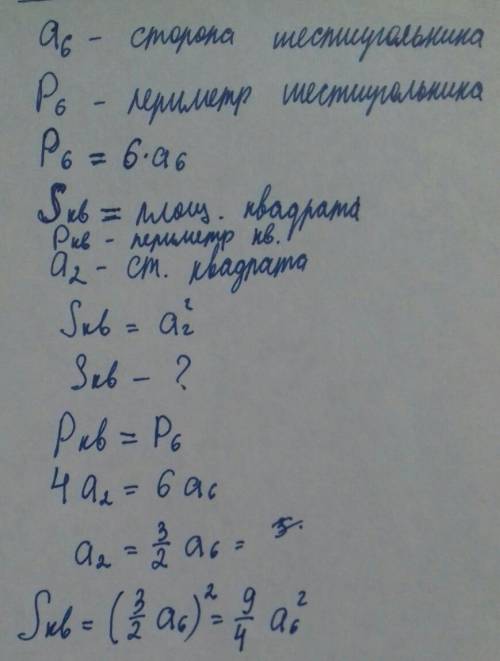 a₆ - сторона шестиугольника
P₆ - периметр шестиугольника
P₆ = 6·a₆
Sкв = площ. квадрата
Pкв - периметр кв.
a₂ - ст. квадрата
Sкв = a₂²
Sкв - ?
Pкв = P₆
4a₂ = 6a₆
a₂ = 3/2 a₆ =
Sкв = (3/2 a₆)² = 9/4 a₆²